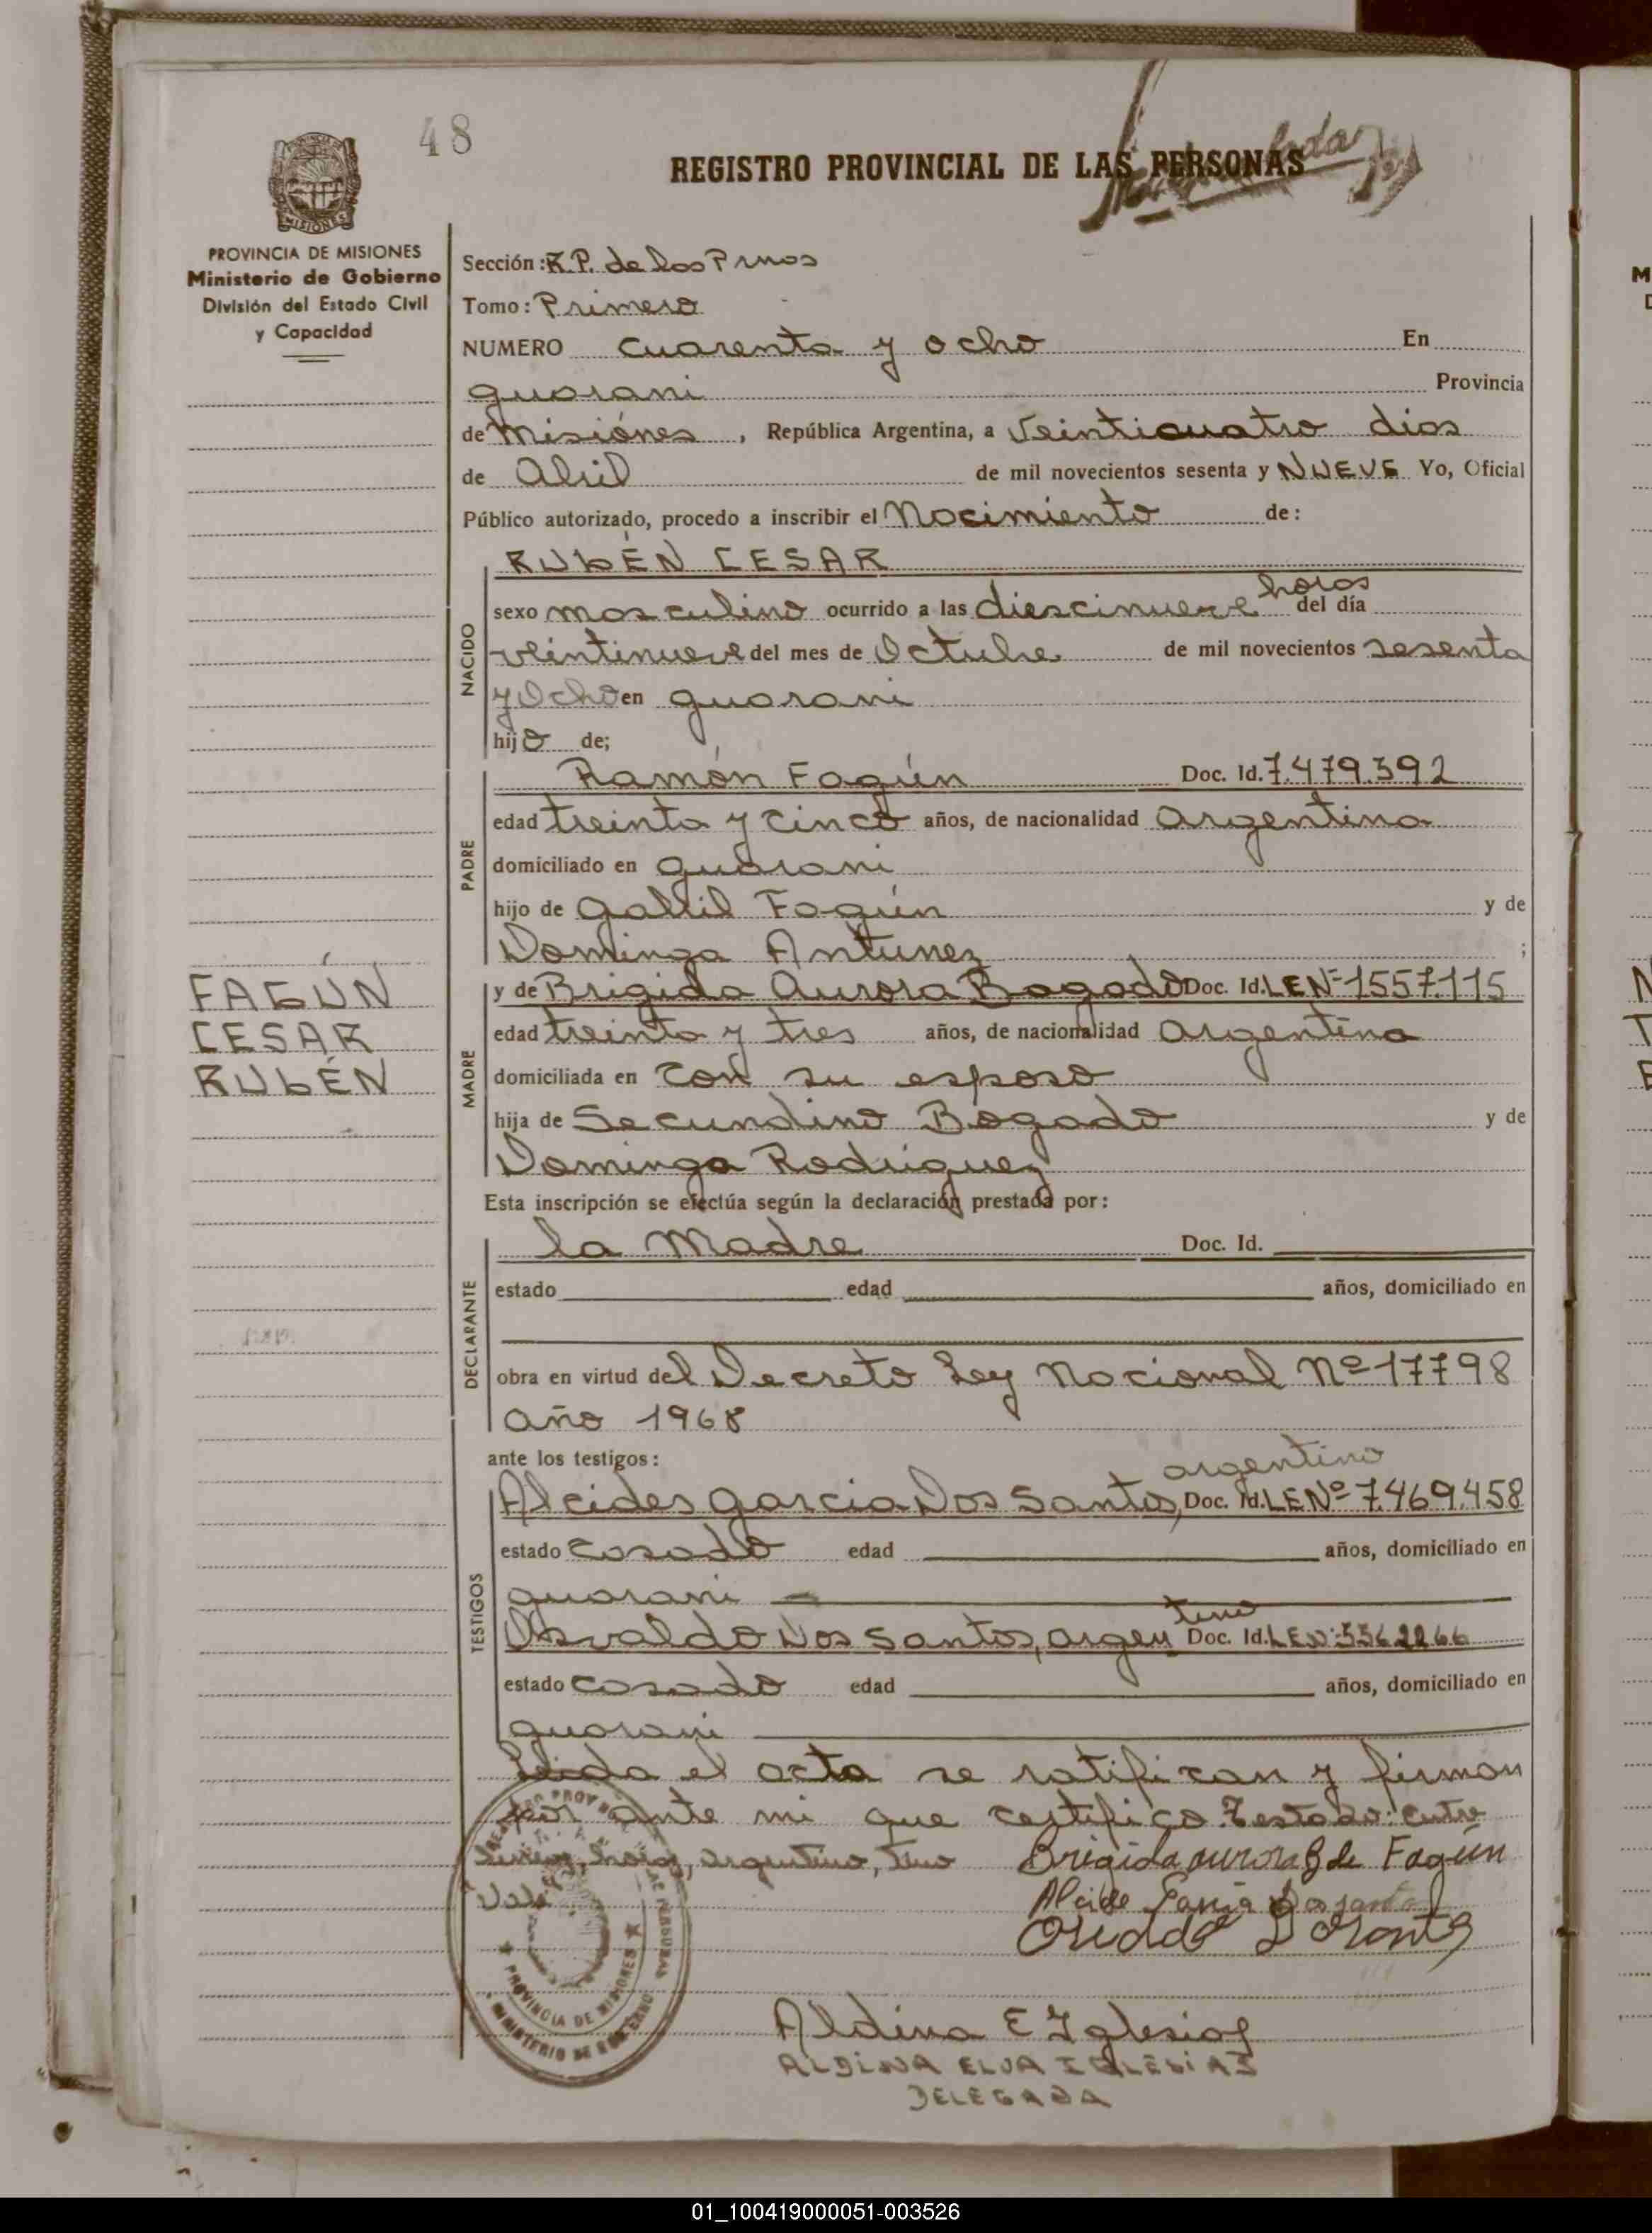 48
REGISTRO PROVINCIAL DE LAS PERSONAS
PROVINCIA DE MISIONES
Ministerio de Gobierno
División del Estado Civil
y Capacidad
Sección: R.P. de las Prnas
Tomo: Primero
NUMERO cuarenta y ocho En
guarani Provincia
de Misiónes, República Argentina, a Veinticuatro dias
de Abril de mil novecientos sesenta y NUEVE Yo, Oficial
Público autorizado, procedo a inscribir el Nacimiento de:
RUbÉN CESAR
NACIDO
sexo masculino ocurrido a las diescinueve horas del día
veintinueve del mes de Octubre de mil novecientos sesenta
y Ocho en guarani
hijo de;
PADRE
Ramón Fagún Doc. Id. 7.479.392
edad treinta y cinco años, de nacionalidad argentina
domiciliado en guarani
hijo de gabril Fagún y de
Dominga Antunez ;
FAGÚN
CESAR
RUbÉN
MADRE
y de Brigida Aurora Bogado Doc. Id. LEN-1557.115
edad treinta y tres años, de nacionalidad argentina
domiciliada en con su esposo
hija de Secundino Bogado y de
Dominga Rodriguez
Esta inscripción se efectúa según la declaración prestada por:
DECLARANTE
la Madre Doc. Id.
estado edad años, domiciliado en
obra en virtud del Decreto Ley Nacional Nº 17798
año 1968
ante los testigos:
TESTIGOS
Alcides garcia Dos Santos, argentino Doc. Id. LENº 7.469.458
estado casado edad años, domiciliado en
guarani
Osvaldo Dos Santos, argentino Doc. Id. LEN
estado casado edad años, domiciliado en
guarani
Leida el acta se ratifican y firman
por ante mi que certifico. Testado: entre
lineas, horas, argentino, tino
Vale
Brigida aurora B de Fagún
Aldina E Iglesias
ALDINA ELVA IGLESIAS
DELEGADA
PROVINCIA DE MISIONES
MINISTERIO DE GOBIERNO
01_100419000051-003526